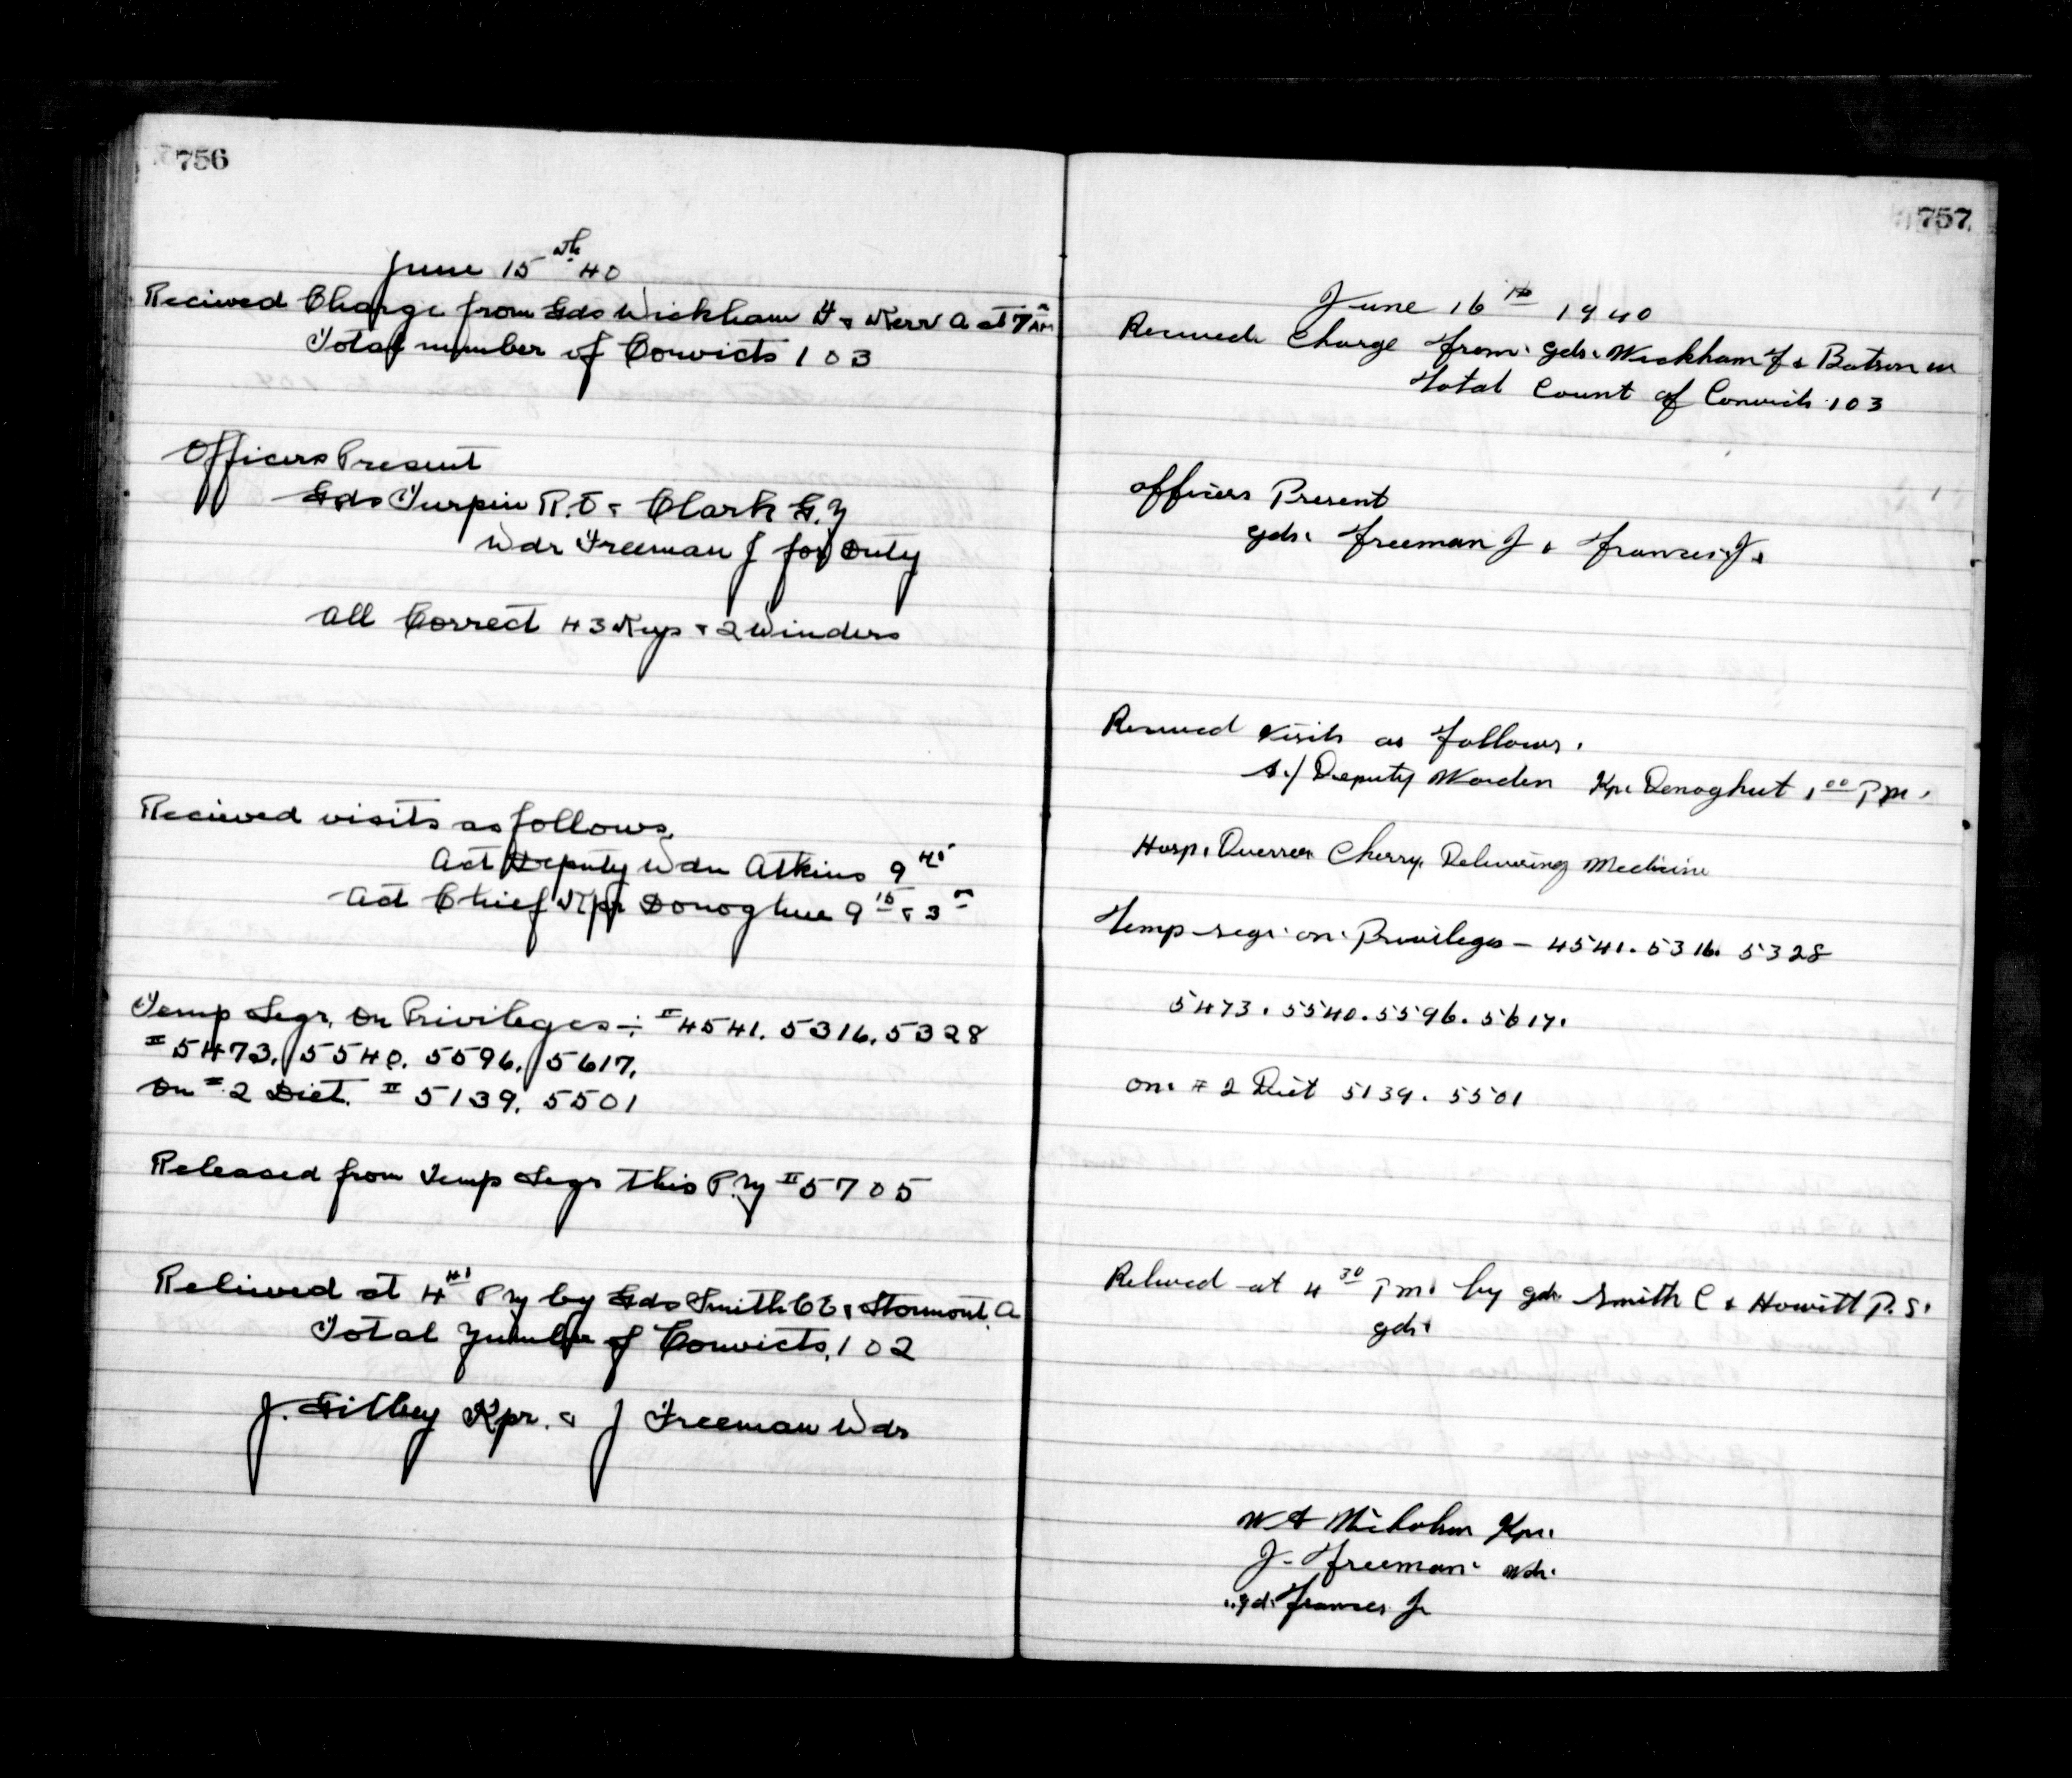 756
June 15th 40
Recieved Charge from Gds Wickham F & Kerr A at 7 AM
Total number of Convicts 103
Officers Present
Gds Turpin R.E & Clark G.
Wdr Freeman J for Duty
All Correct 43 Keys & 2 Winders
Recieved visits as follows.
Act Deputy Wdn Atkins 9 45
Act Chief Kpr Donoghue 9 15 & 3
Temp Segr. On Privileges ÷ # 4541. 5316. 5328
# 5473. 5540. 5596. 5617.
On # 2 Diet. # 5139. 5501
Released from Temp Segr this P.M # 5705
Relieved at 4 P M by Gds Smith C E & Stormont. A
Total Number of Convicts. 102
J. Gilbey Kpr. & J Freeman Wdr
757
June 16th 1940
Received Charge from. gds. Wickham F & Batson W
Total Count of Convicts 103
officers Present
gds. Freeman J & Frances. J.
Received visits as follows.
A./ Deputy Warden Kpr. Donoghue 1 00 P m.
Hosp. Overseer Cherry. Delivering Medicine
Temp segr. on. Privileges — 4541. 5316. 5328
5473. 5540. 5596. 5617.
on. # 2 Diet 5139. 5501
Relieved at 4 30 P m. by gds Smith C & Howitt P. S.
gds.
W A Nicholson Kpr.
J. Freeman. Wdr.
gd. Frances J.